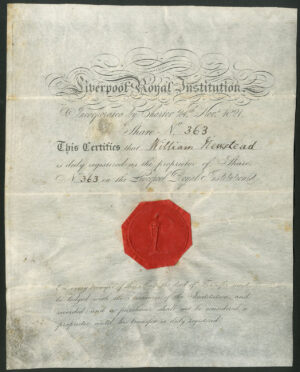 Liverpool Royal Institution
Incorporated by Charter
Share No. 363
This Certifies that William
is duly registered as the proprietor of Share
No. 363 in the Liverpool Royal Institution
to be lodged with the Treasurer of the Institution, and
recorded and a purchaser shall not be considered a
proprietor until his transfer is duly registered